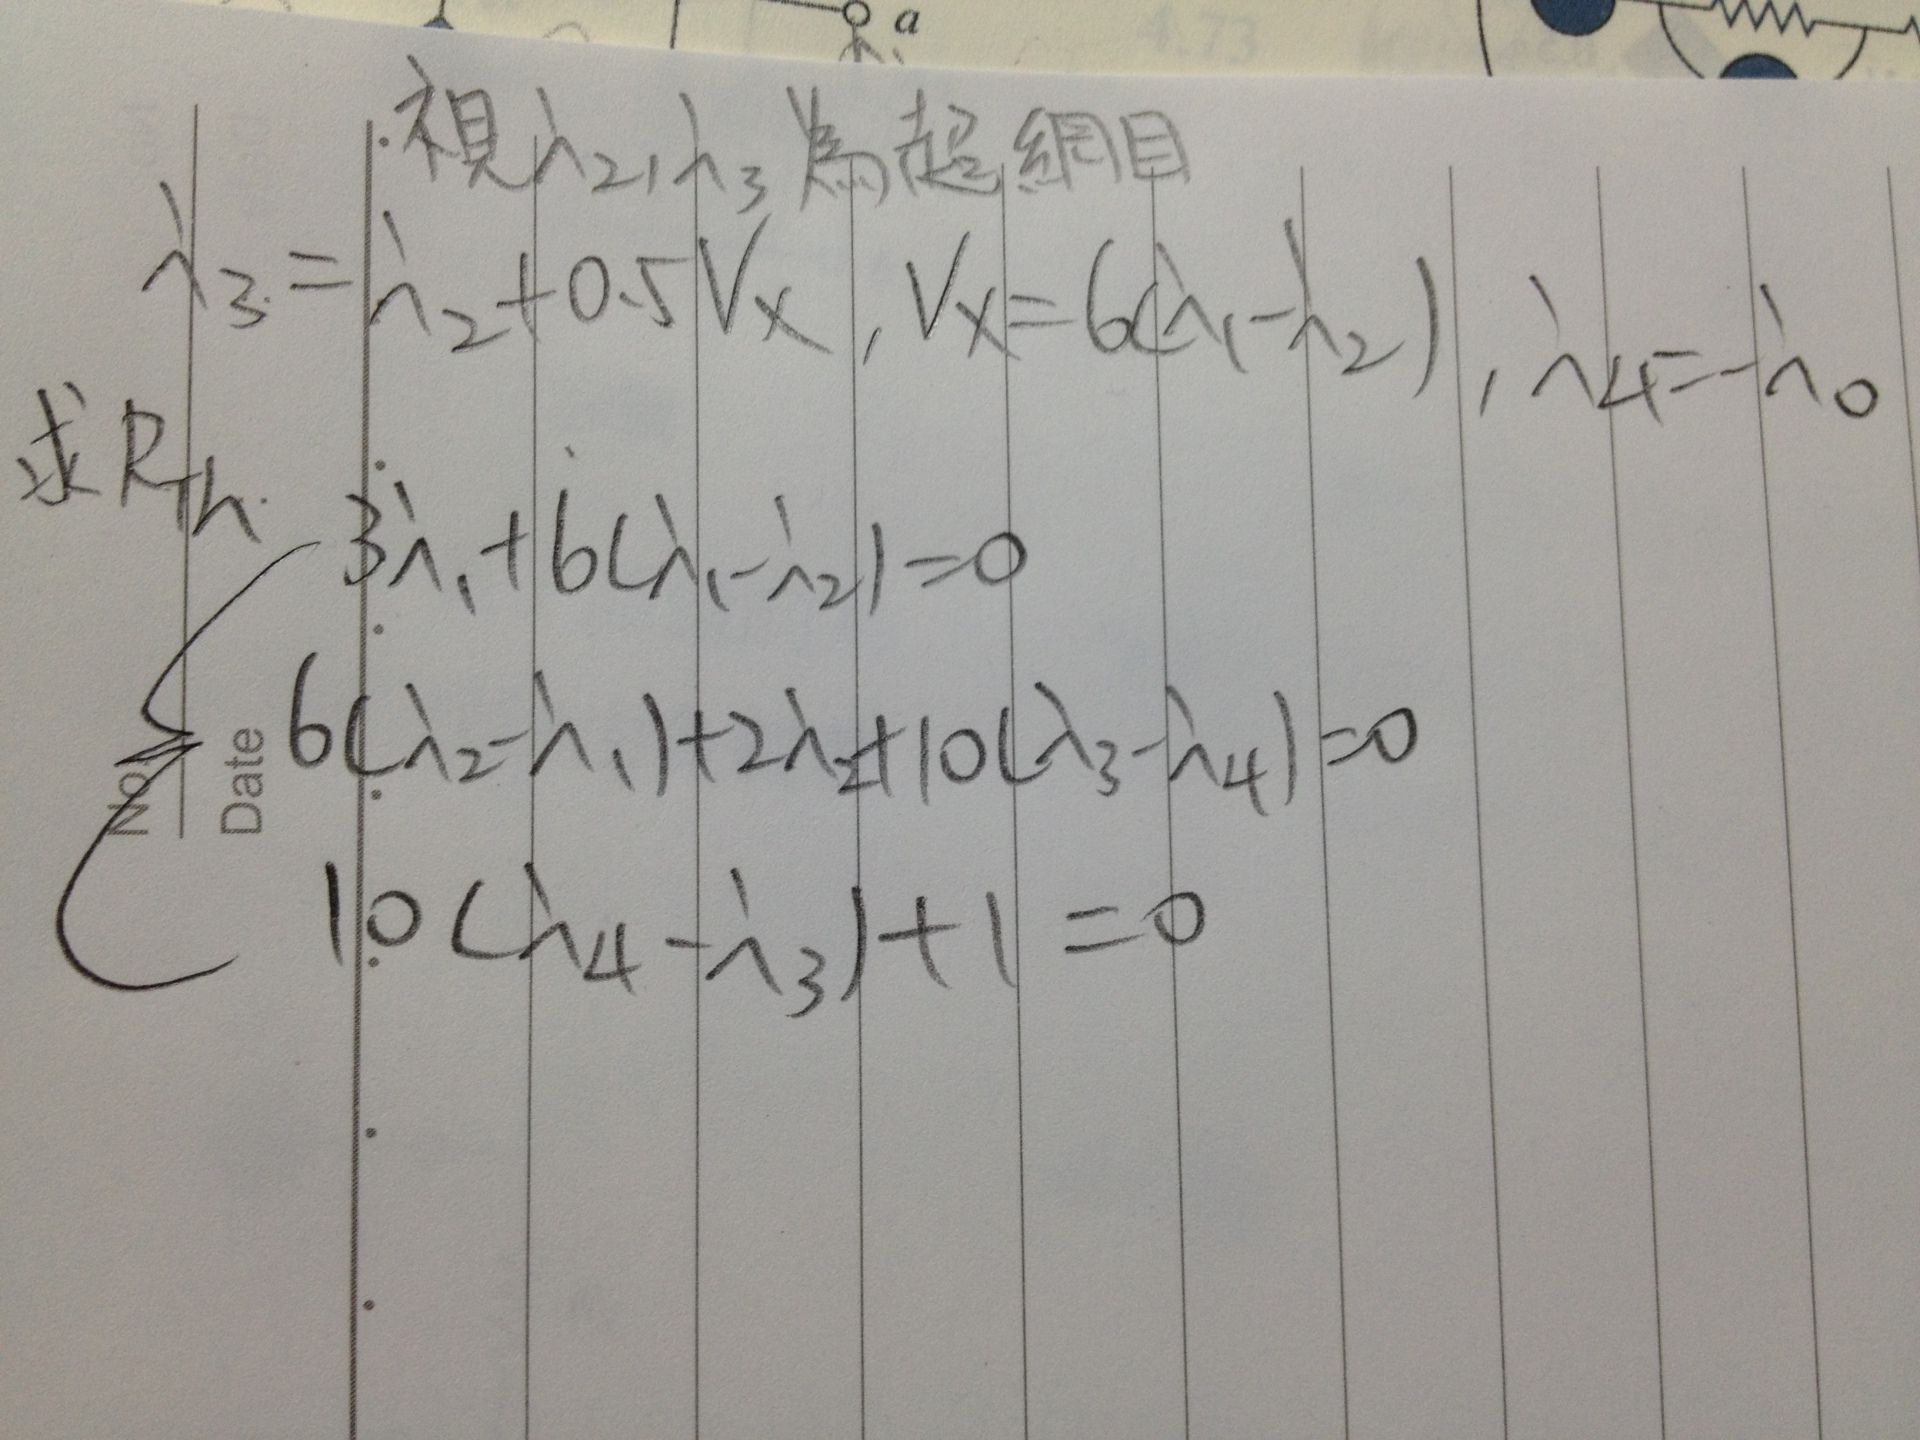 a
4.73
視i₂,i₃為超網目
i₃=i₂+0.5Vx, Vx=6(i₁-i₂), i₄=-i₀
求R_Th
3i₁+6(i₁-i₂)=0
6(i₂-i₁)+2i₂+10(i₃-i₄)=0
10(i₄-i₃)+1=0
No.
Date